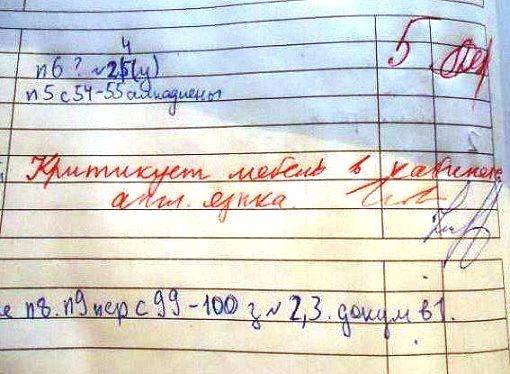 4
п 6 ? № 25(у) 5
п 5 с 54-55
Критикует мебель в кабинете
англ. языка.
е п 8. п 9 пер с 99-100 з № 2,3. докум в 1.